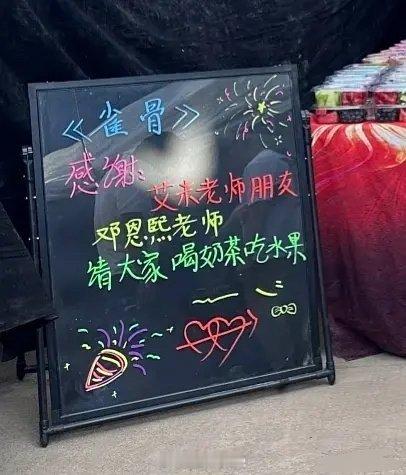 《雀骨》
感谢:
艾米老师朋友
邓恩熙老师
请大家喝奶茶吃水果